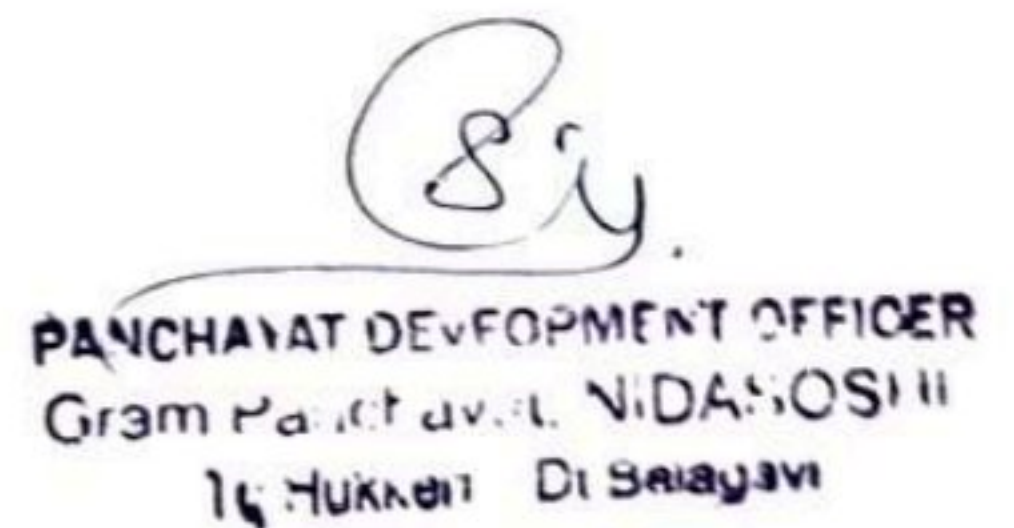 PANCHAYAT DEVEOPMENT OFFICER
Gram Panchayat. NIDASOSHI
Tq Hukkeri Dt Belagavi